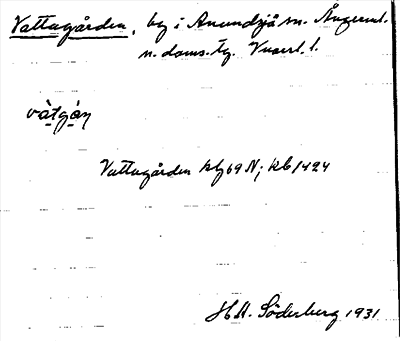 Vattagården, by i Anundsjö sn. Ångerml.
n. doms. tg. Vnorrl. l.
våtgá̱ṇ
Vattagården kg 69 N; kb 1424
H.H. Söderberg 1931